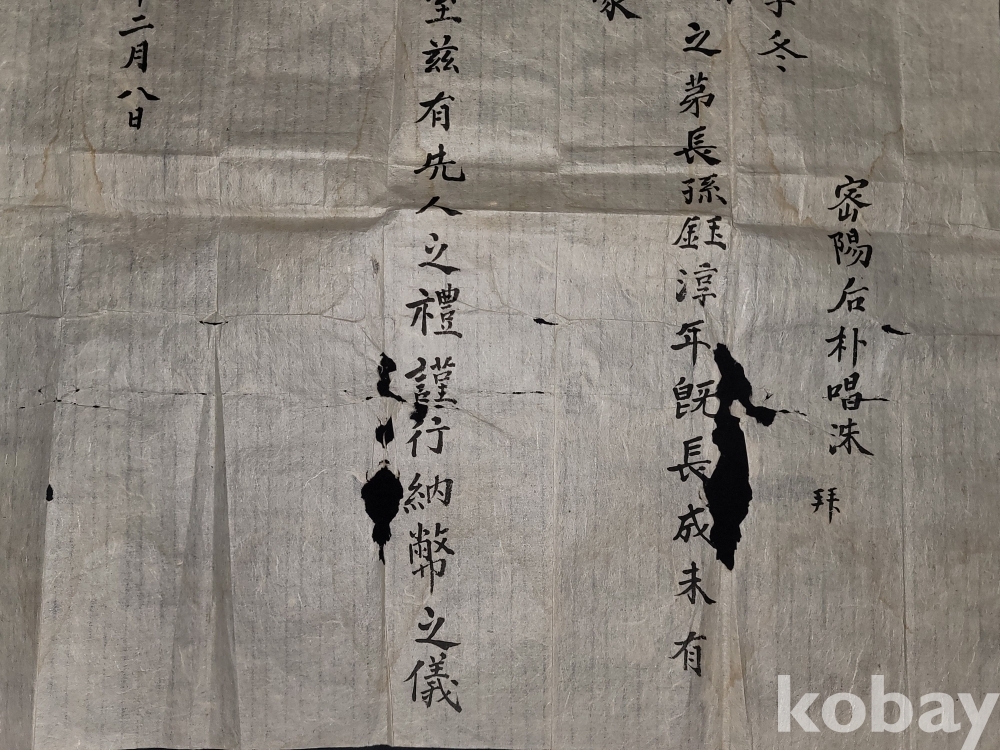 密陽后朴唱洙 拜
季冬
之第長孫鈺淳年旣長成未有
家
室玆有先人之禮謹行納幣之儀
年二月八日
kobay